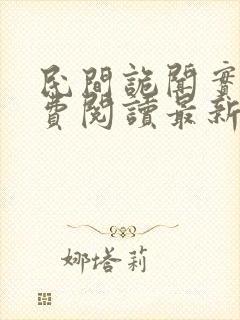 民間詭聞實
費閱讀最新
娜塔莉